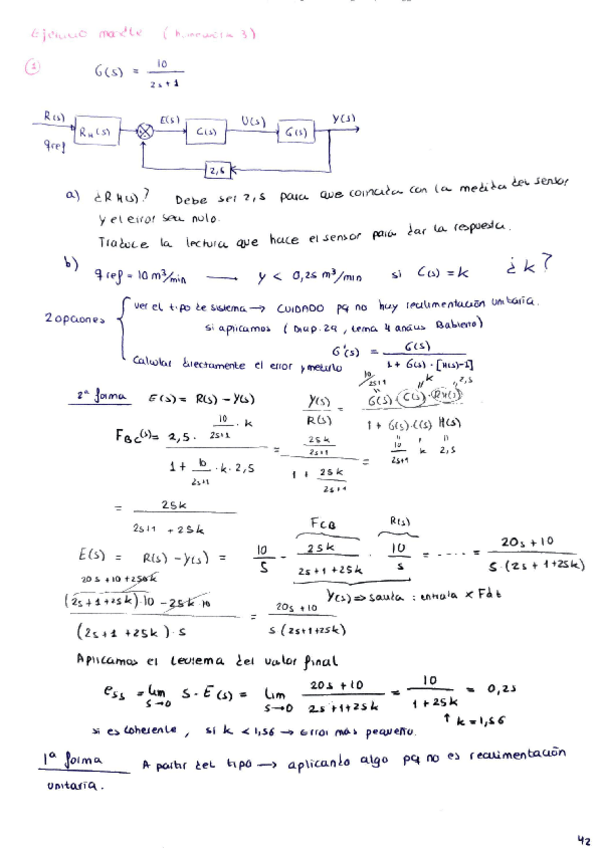 Ejercicio martes (Bimestre 3)
① G(s) = 10 / 2s+1
R(s) E(s) U(s) Y(s)
qref RH(s) C(s) G(s)
2,5
a) ¿RH(s)? Debe ser 2,5 para que coincida con la medida del sensor
y el error sea nulo.
Traduce la lectura que hace el sensor para dar la respuesta.
b) qref = 10 m³/min → y < 0,25 m³/min si C(s) = k ¿k?
2 opciones
ver el tipo de sistema → CUIDADO pq no hay realimentación unitaria.
si aplicamos (Diap. 29, tema 4
G'(s) = G(s) / 1 + G(s)·[H(s)-1]
Calcular directamente el error y meterlo
2ª forma E(s) = R(s) - Y(s) Y(s)/R(s) = G(s)·C(s)·RH(s) / 1 + G(s)·C(s) H(s)
10/2s+1 k 2,5
10/2s+1 k 2,5
FBC(s) = 2,5 · 10/2s+1 · k / 1 + 10/2s+1 · k · 2,5 = 25k/2s+1 / 1 + 25k/2s+1 =
= 25k / 2s+1 + 25k
FCB R(s)
E(s) = R(s) - Y(s) = 10/s - 25k/2s+1+25k · 10/s = ..... = 20s+10 / s·(2s+1+25k)
Y(s) => salida : entrada x Fdt
20s+10+250k
(2s+1+25k)·10 - 25k·10 / (2s+1+25k)·s = 20s+10 / s(2s+1+25k)
Aplicamos el teorema del valor final
ess = lim s→0 s·E(s) = lim s→0 20s+10 / 2s+1+25k = 10 / 1+25k = 0,25
↑ k = 1,56
si es coherente, si k < 1,56 → error más pequeño.
1ª forma A partir del tipo → aplicando algo pq no es realimentación
unitaria.
42